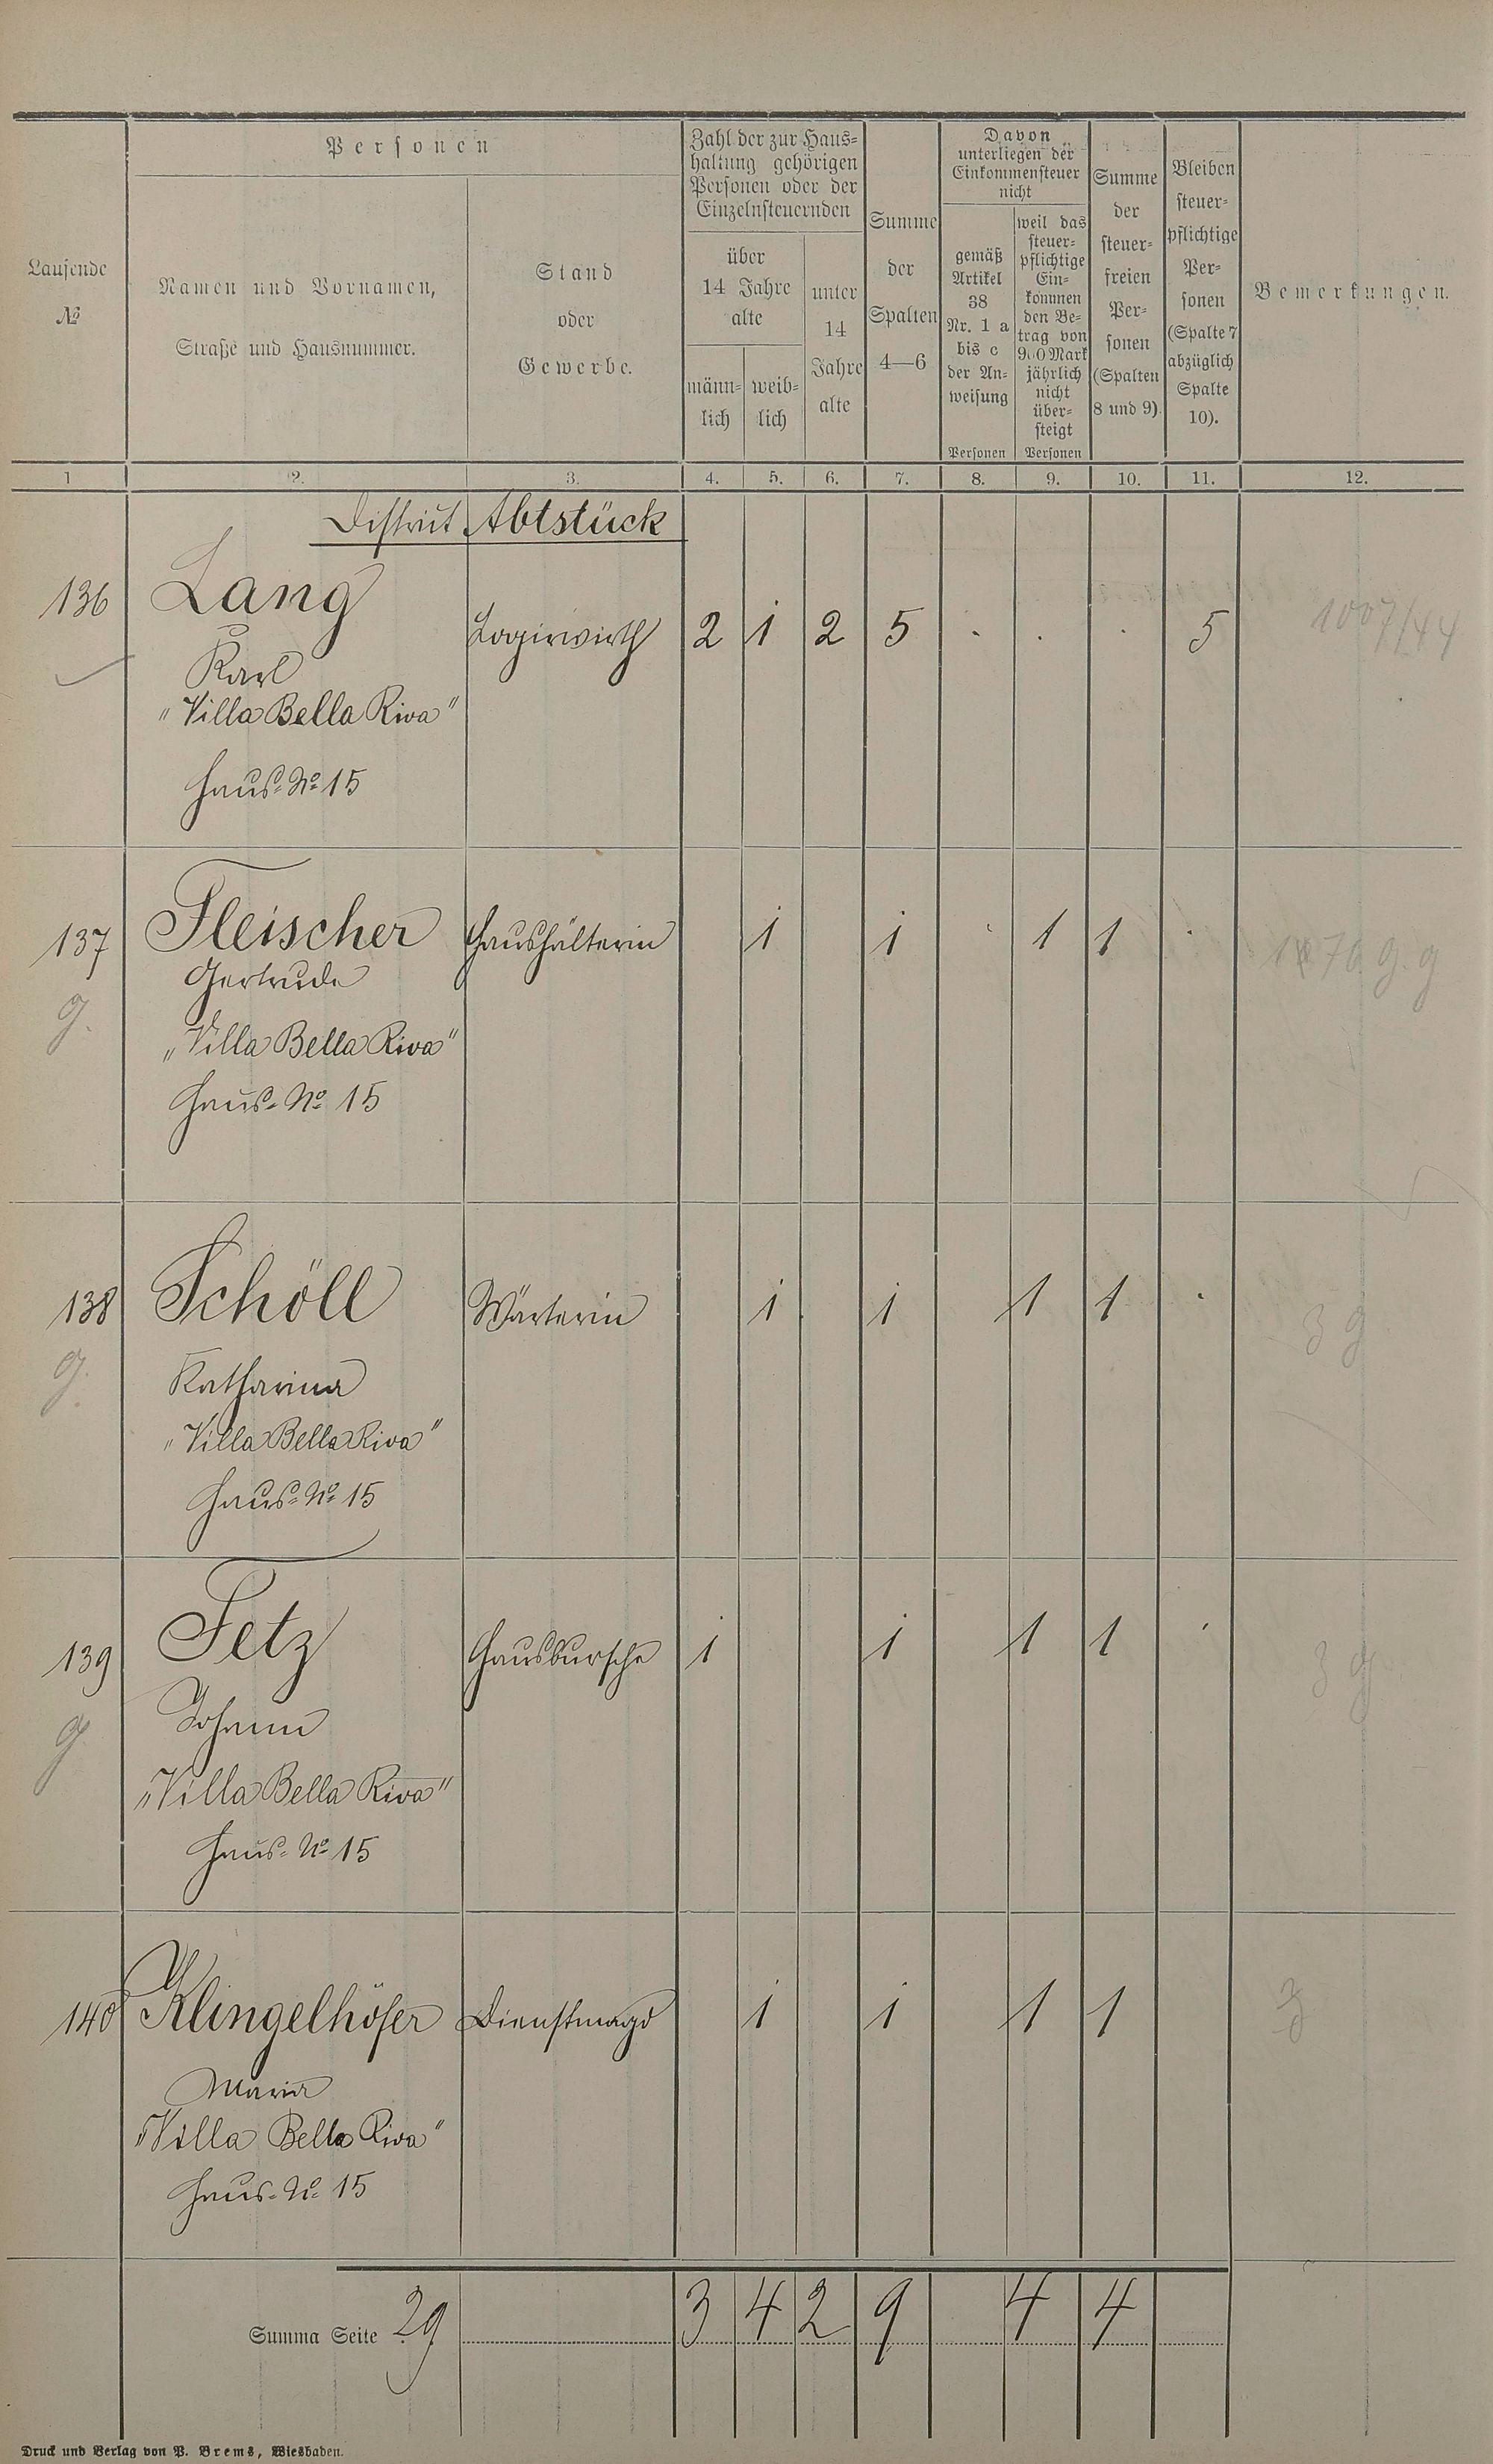 Personen
Zahl der zur Haus=
haltung gehörigen
Personen oder der
Einzelnsteuernden
Davon
unterliegen der
Einkommensteuer
nicht
Laufende
№
Namen und Vornamen,
Straße und Hausnummer.
Stand
oder
Gewerbe.
über
14 Jahre
alte
männ=
lich
weib=
lich
unter
14
Jahre
alte
Summe
der
Spalten
4—6
gemäß
Artikel
38
Nr. 1 a
bis c
der An=
weisung
Personen
weil das
steuer=
pflichtige
Ein=
kommen
den Be=
trag von
900 Mark
jährlich
nicht
über=
steigt
Personen
Summe
der
steuer=
freien
Per=
sonen
(Spalten
8 und 9).
Bleiben
steuer=
pflichtige
Per=
sonen
(Spalte 7
abzüglich
Spalte
10).
Bemerkungen.
1 2. 3. 4. 5. 6. 7. 8. 9. 10. 11. 12.
District Abtstück
136 Lang Logirwirth 2 1 2 5 . . . 5 1007/44
Karl
"Villa Bella Riva"
Haus=№ 15
137 Fleischer Haushälterin 1 1 . 1 1 .
g. Gertrude
"Villa Bella Riva"
Haus=№ 15
138 Schöll Wärterin 1 1 1 1 . 3 g
g. Katharina
"Villa Bella Riva"
Haus=№ 15
139 Fetz Hausbursche 1 1 1 1 . 3 g
g Johann
"Villa Bella Riva"
Haus=№ 15
140 Klingelhöfer Dienstmagd 1 1 1 1
Maria
"Villa Bella Riva"
Haus=№ 15
Summa Seite 29 3 4 2 9 4 4
Druck und Verlag von P. Brems, Wiesbaden.